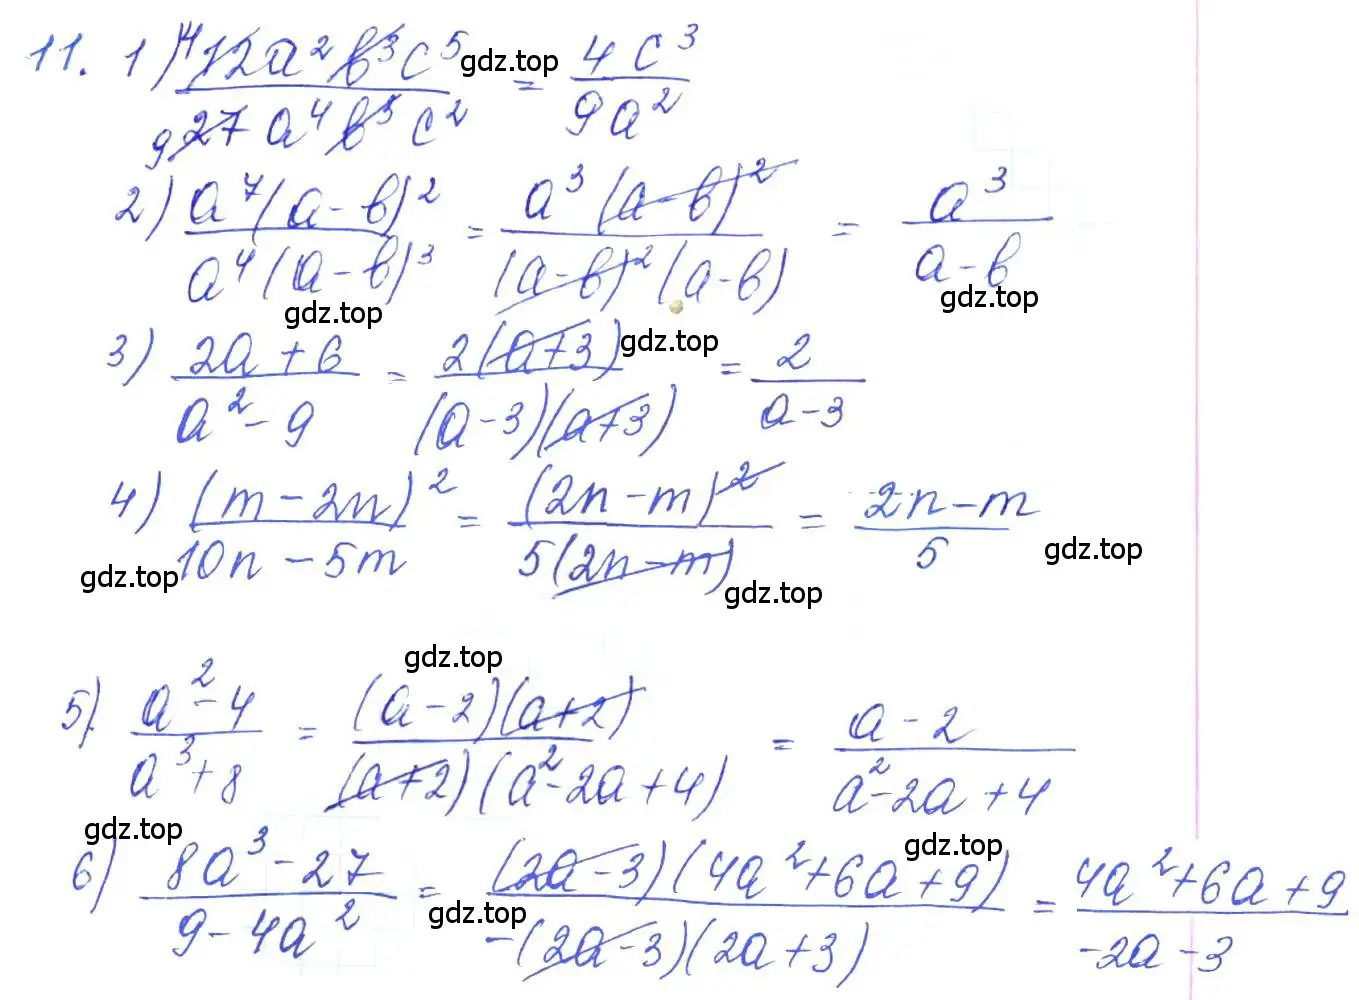 11. 1) 4 12a²b³c⁵ / 9 27a⁴b³c² = 4c³ / 9a²
gdz.top
2) a⁷(a-b)² / a⁴(a-b)³ = a³(a-b)² / (a-b)²(a-b) = a³ / a-b
gdz.top gdz.top
3) 2a+6 / a²-9 = 2(a+3) / (a-3)(a+3) = 2 / a-3
gdz.top
4) (m-2n)² / 10n-5m = (2n-m)² / 5(2n-m) = 2n-m / 5
gdz.top gdz.top gdz.top
gdz.top
5) a²-4 / a³+8 = (a-2)(a+2) / (a+2)(a²-2a+4) = a-2 / a²-2a+4
gdz.top gdz.top
6) 8a³-27 / 9-4a² = (2a-3)(4a²+6a+9) / -(2a-3)(2a+3) = 4a²+6a+9 / -2a-3
gdz.top